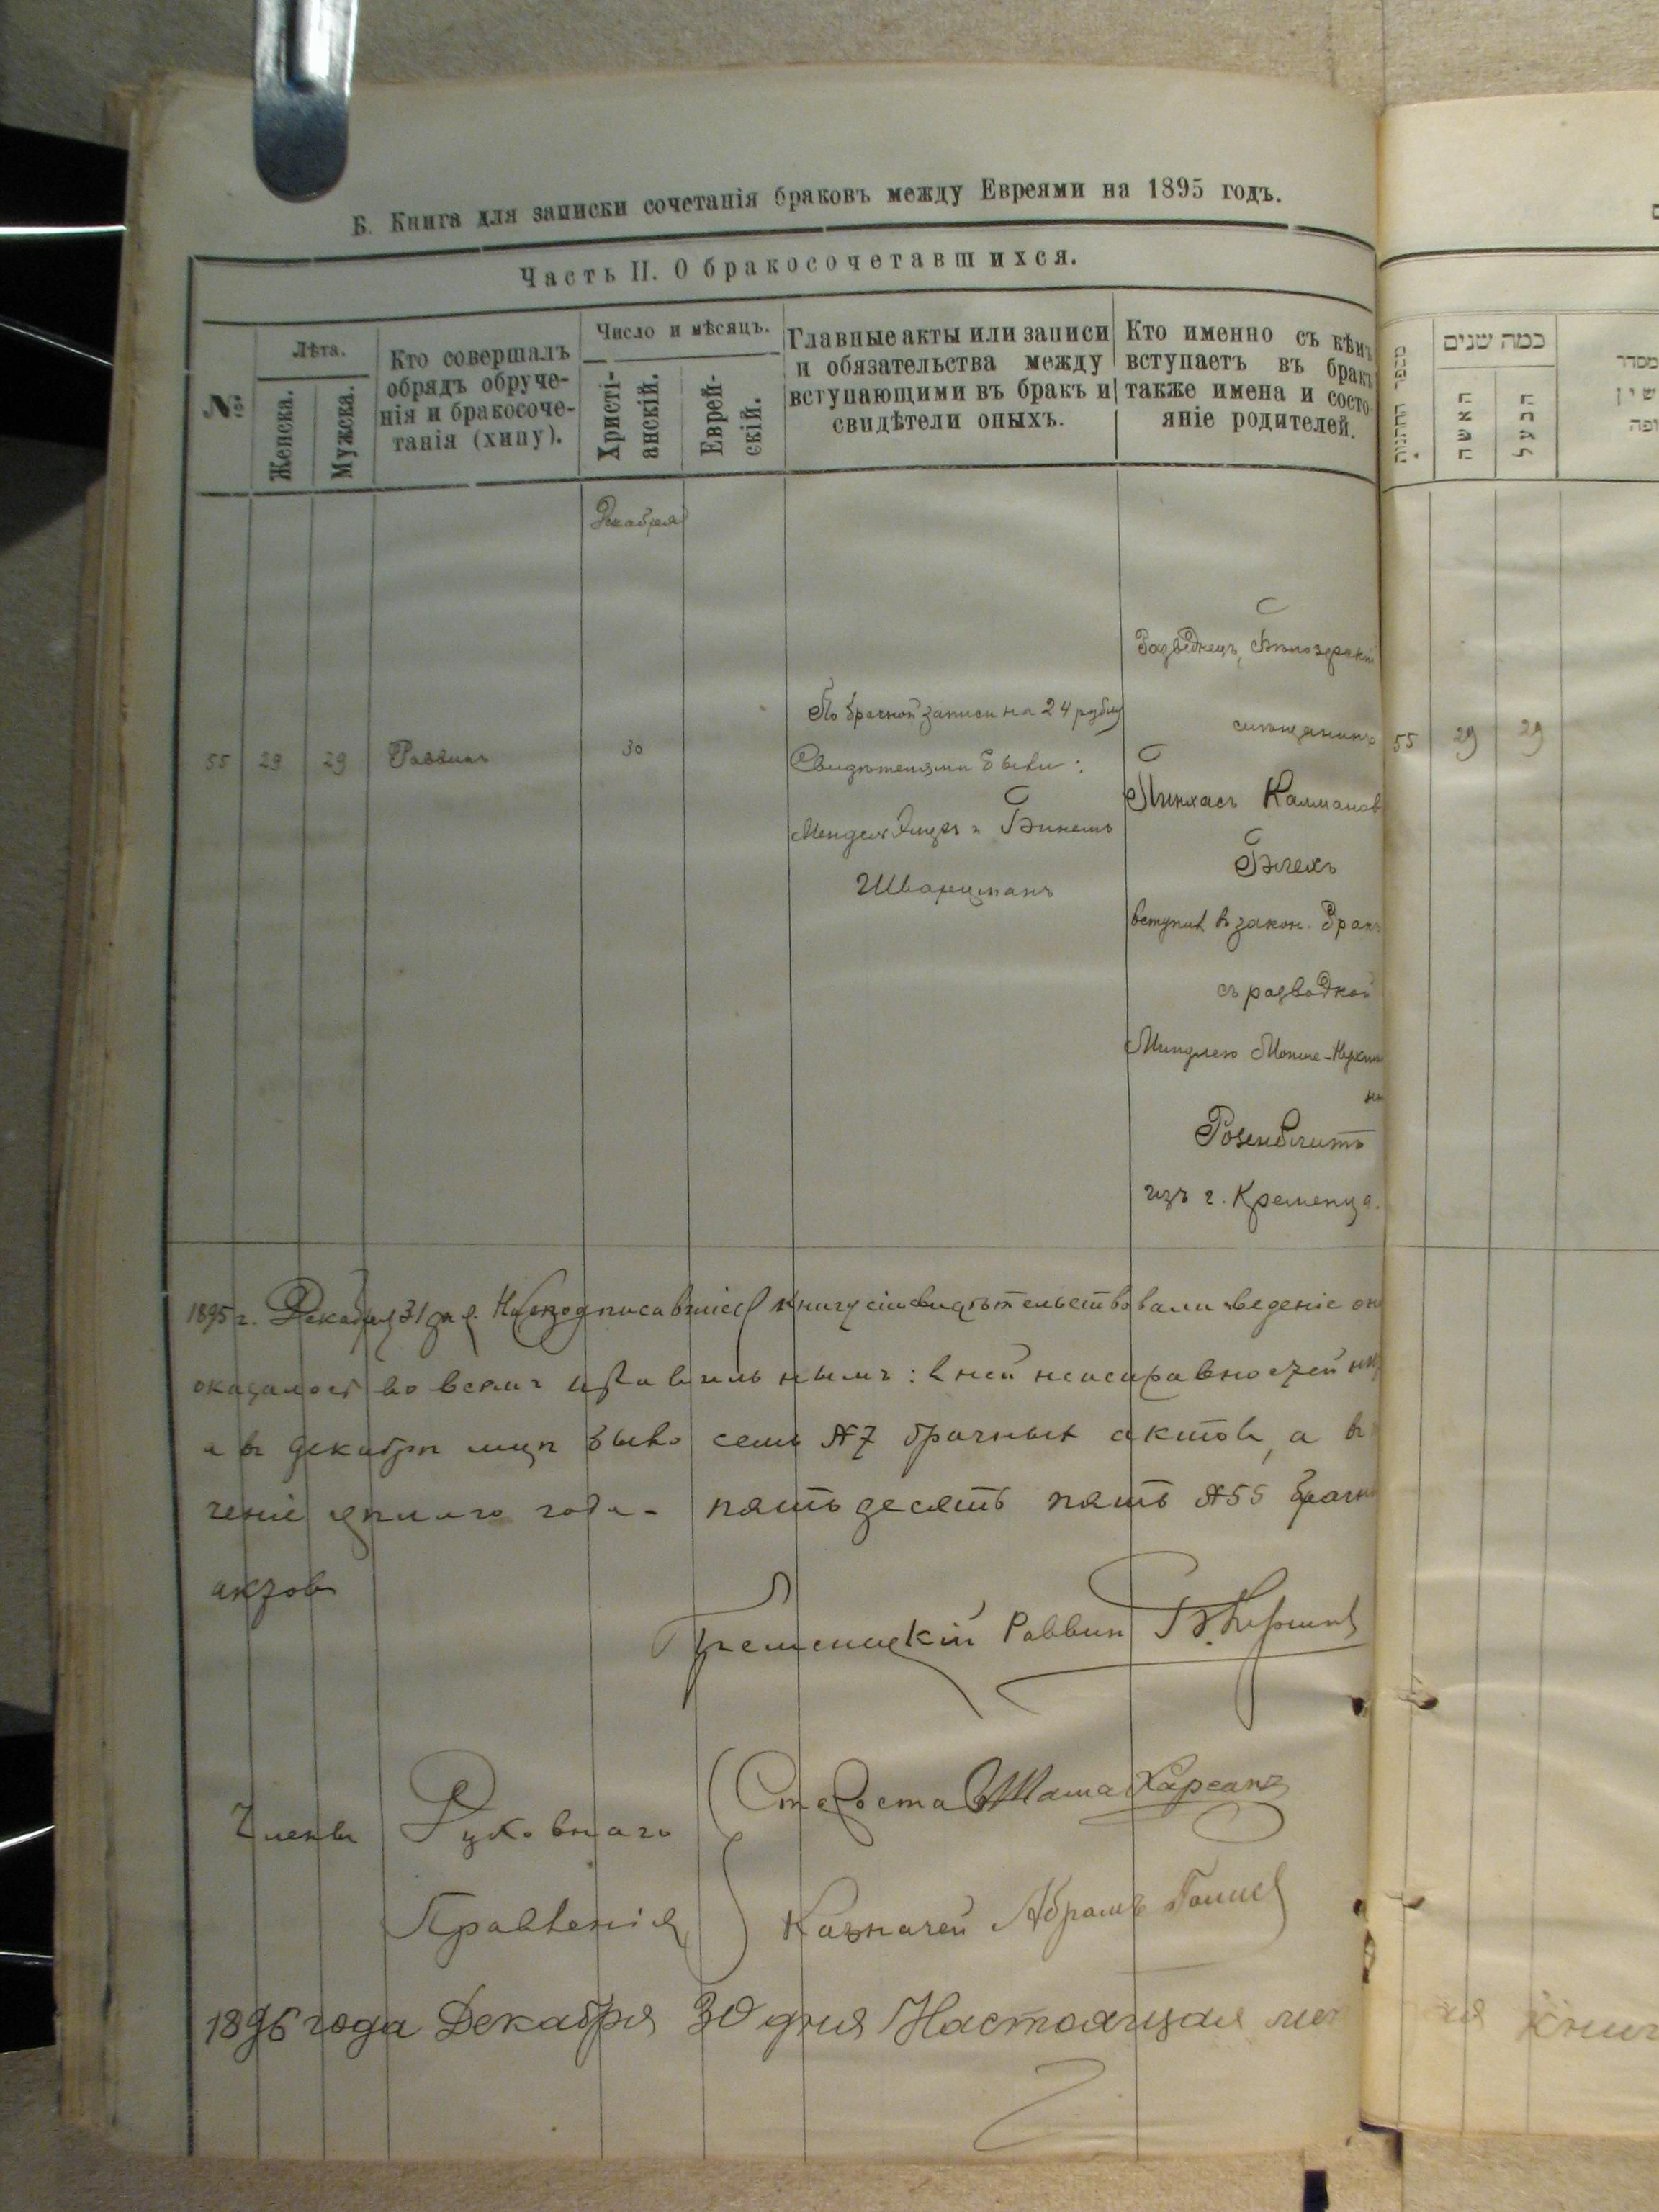 Б. Книга для записки сочетанія браковъ между Евреями на 1895 годъ.
Часть II. О бракосочетавшихся.
№
Лѣта.
Женска.
Мужска.
Кто совершалъ
обрядъ обруче-
нія и бракосоче-
танія (хипу).
Число и мѣсяцъ.
Христі-
анскій.
Еврей-
скій.
Главные акты или записи
и обязательства между
вступающими въ бракъ и
свидѣтели оныхъ.
Кто именно съ кѣмъ
вступаетъ въ бракъ
также имена и состо-
яніе родителей.
Декабря
55 29 29 Раввинъ 30
По брачной записи на 24 рубля
Свидѣтелями были:
Мендель и Бинемъ
Шварцманъ
Разводнецъ,
мѣщанинъ
Пинхасъ Калманов
Блехъ
вступил в закон. бракъ
съ разводкой
Миндлею Мошие-
на
Розенблитъ
изъ г. Кременца.
1895 г. Декабря 31 дня. Нижеподписавшіеся книгу сію свидѣтельствовали и веденіе он
оказалось во всемъ правильнымъ: в ней неисправностей
а в декабрѣ мцѣ было семь №7 брачных актов, а в
ченіе цѣлаго года - пятьдесятъ пять №55 брачн
актов
Кременецкій Раввин
Члены Духовнаго
Правленія
Староста
Казначей Абрамъ
1896 года Декабря 30 дня Настоящая
книг
מספר החתונה
כמה שנים
האשה
הבעל
מסדר
55 29 29